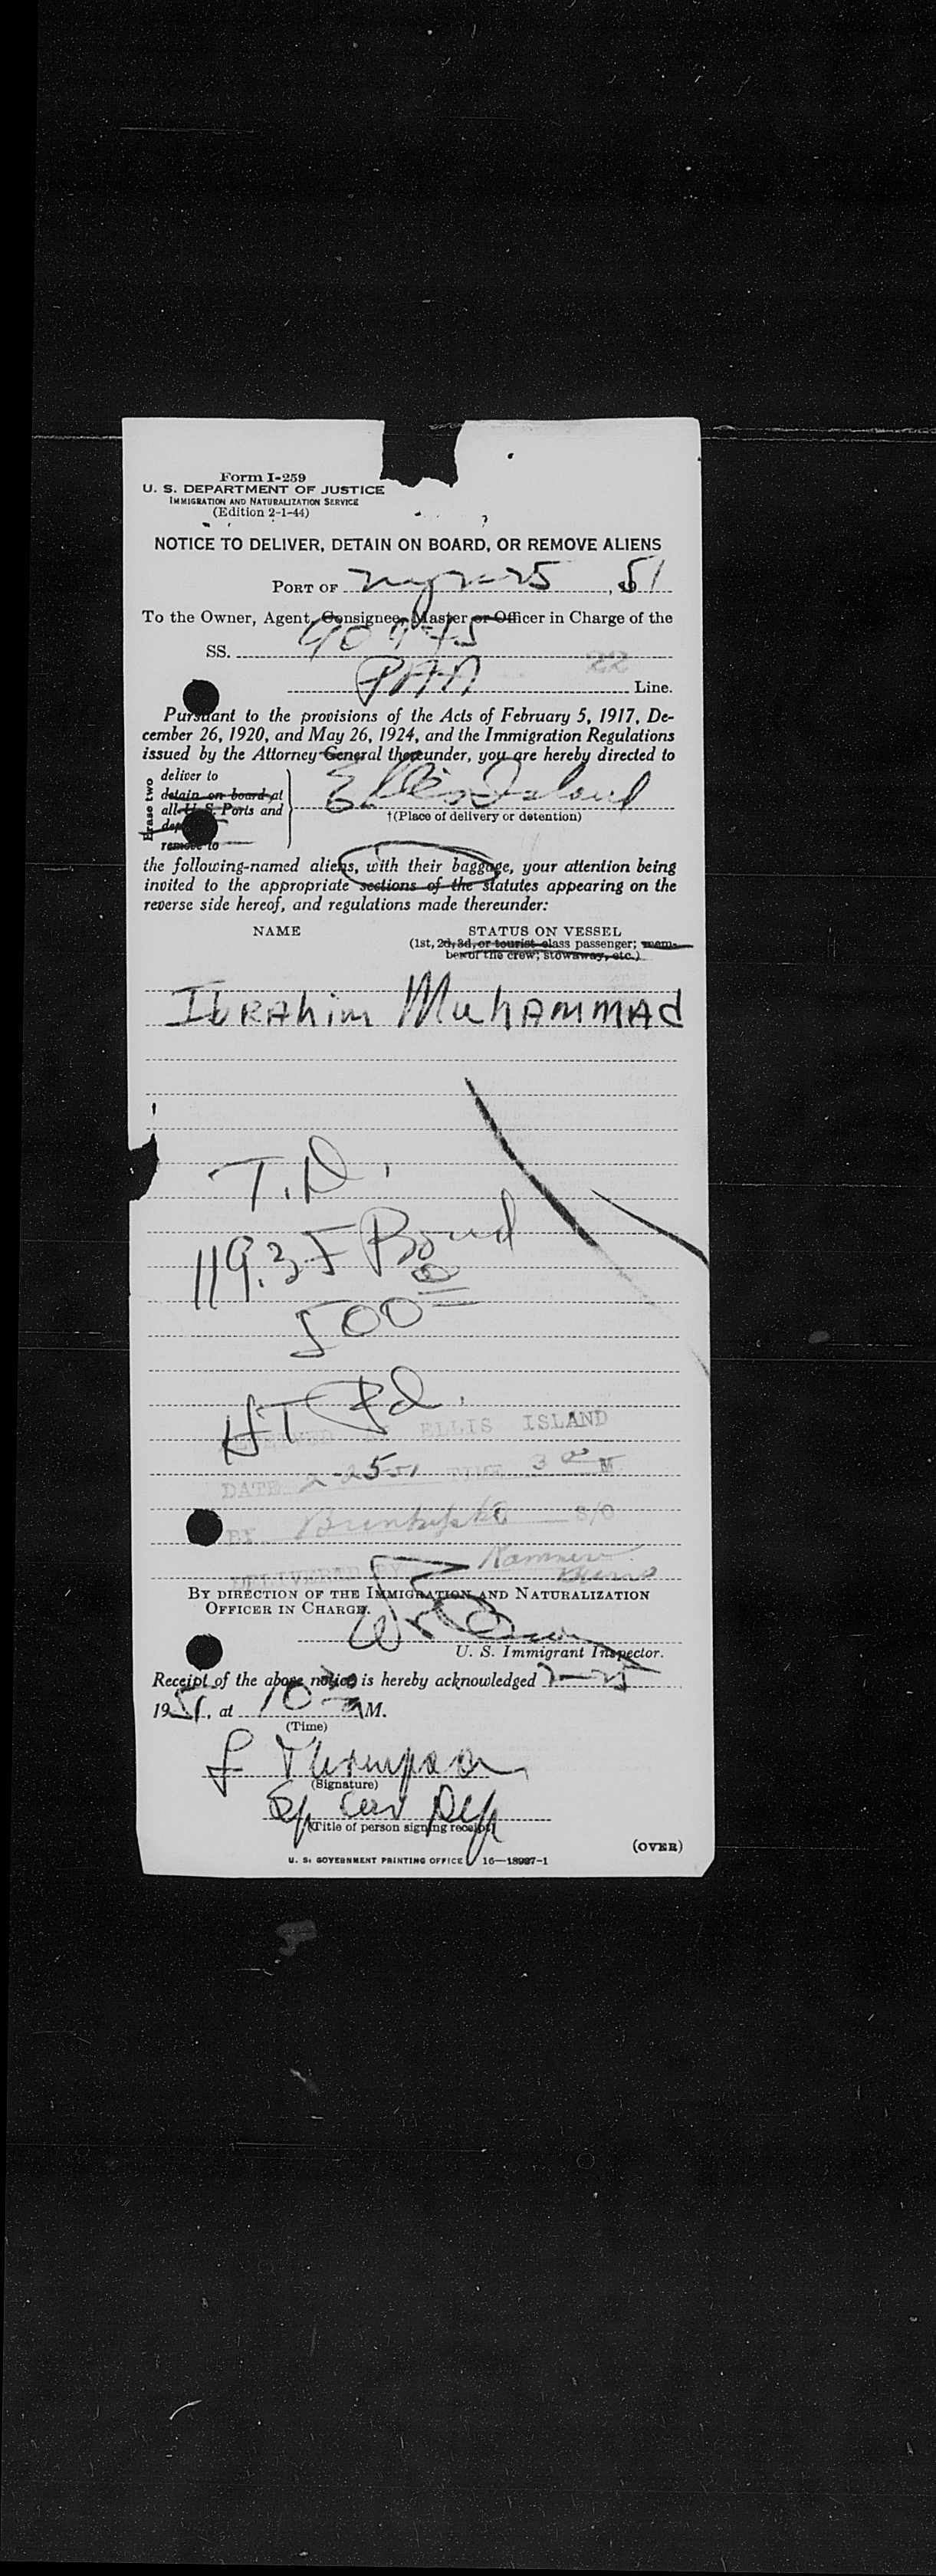 Form I-259
U. S. DEPARTMENT OF JUSTICE
IMMIGRATION AND NATURALIZATION SERVICE
(Edition 2-1-44)
NOTICE TO DELIVER, DETAIN ON BOARD, OR REMOVE ALIENS
PORT OF 2-25, 51
To the Owner, Agent, Consignee, Master or Officer in Charge of the
SS.
PAA 22 Line.
Pursuant to the provisions of the Acts of February 5, 1917, De-
cember 26, 1920, and May 26, 1924, and the Immigration Regulations
issued by the Attorney General thereunder, you are hereby directed to
Erase two
deliver to
detain on board at
all U. S. Ports and
remove to
Ellis Island
†(Place of delivery or detention)
the following-named aliens, with their baggage, your attention being
invited to the appropriate sections of the statutes appearing on the
reverse side hereof, and regulations made thereunder:
NAME STATUS ON VESSEL
(1st, 2d, 3d, or tourist class passenger; mem-
ber of the crew; stowaway, etc.)
Ibrahim Muhammad
T.D.
Bond
500 00
HT Pd.
ELLIS ISLAND
DATE 2-25-51 TIME 3 00 M
BY S/O
DELIVERED BY
BY DIRECTION OF THE IMMIGRATION AND NATURALIZATION
OFFICER IN CHARGE.
U. S. Immigrant Inspector.
Receipt of the above notice is hereby acknowledged 2-25
1951, at 10 M.
(Time)
Thompson
(Signature)
(Title of person signing receipt)
(OVER)
U. S. GOVERNMENT PRINTING OFFICE 16—18997-1